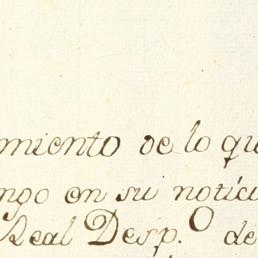 miento de lo qu
ngo en su notici
Real Desp.º de